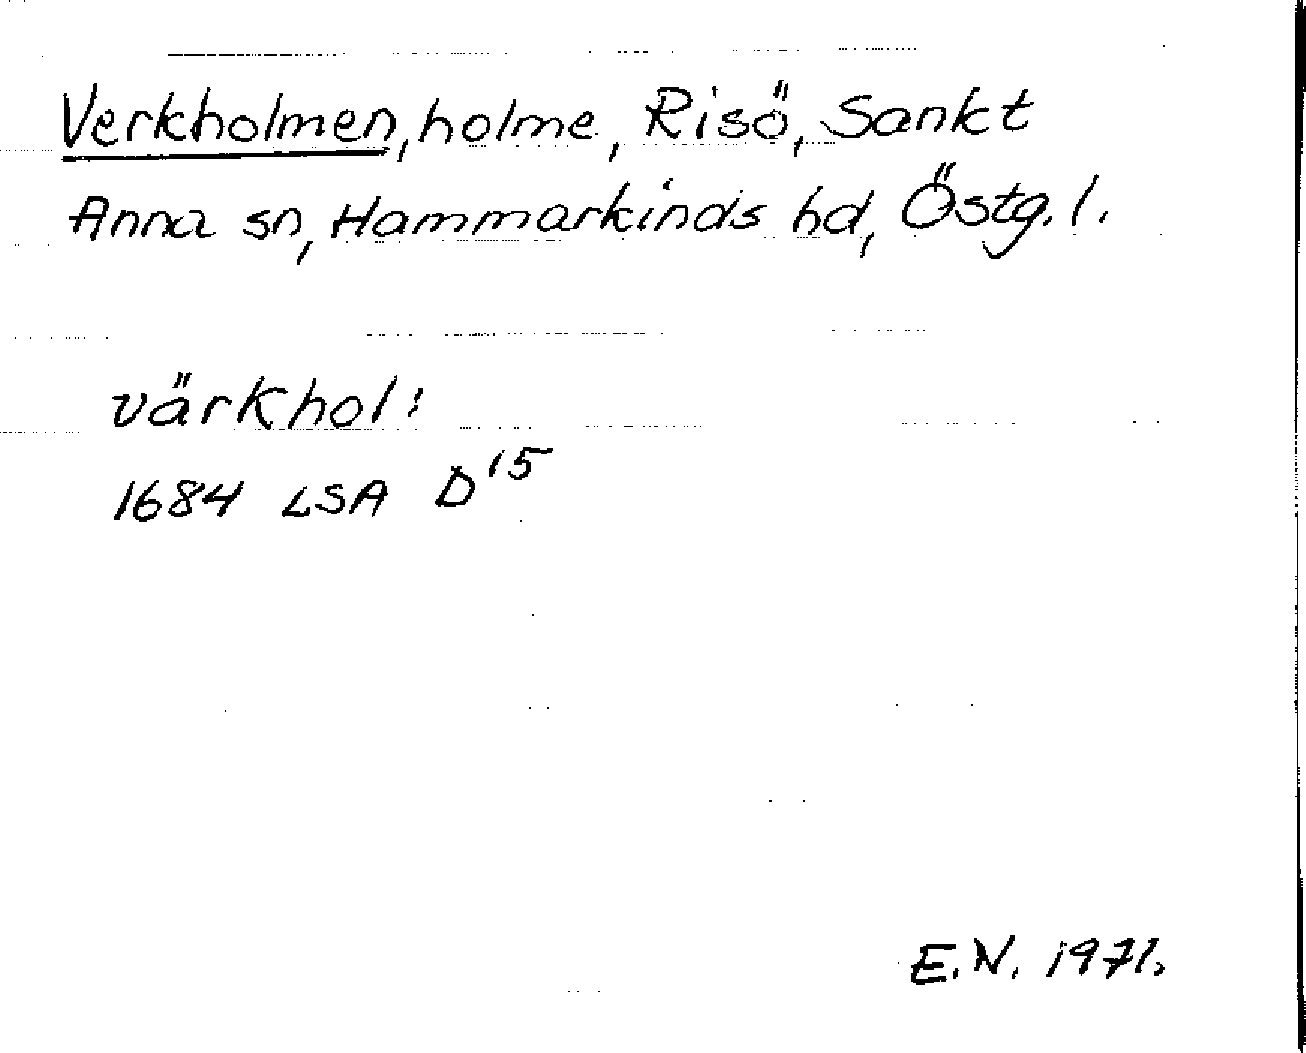 Verkholmen, holme, Risö, Sankt
Anna sn, Hammarkinds hd, Östg. l.
värkhol:
1684 LSA D15
E.N. 1971.